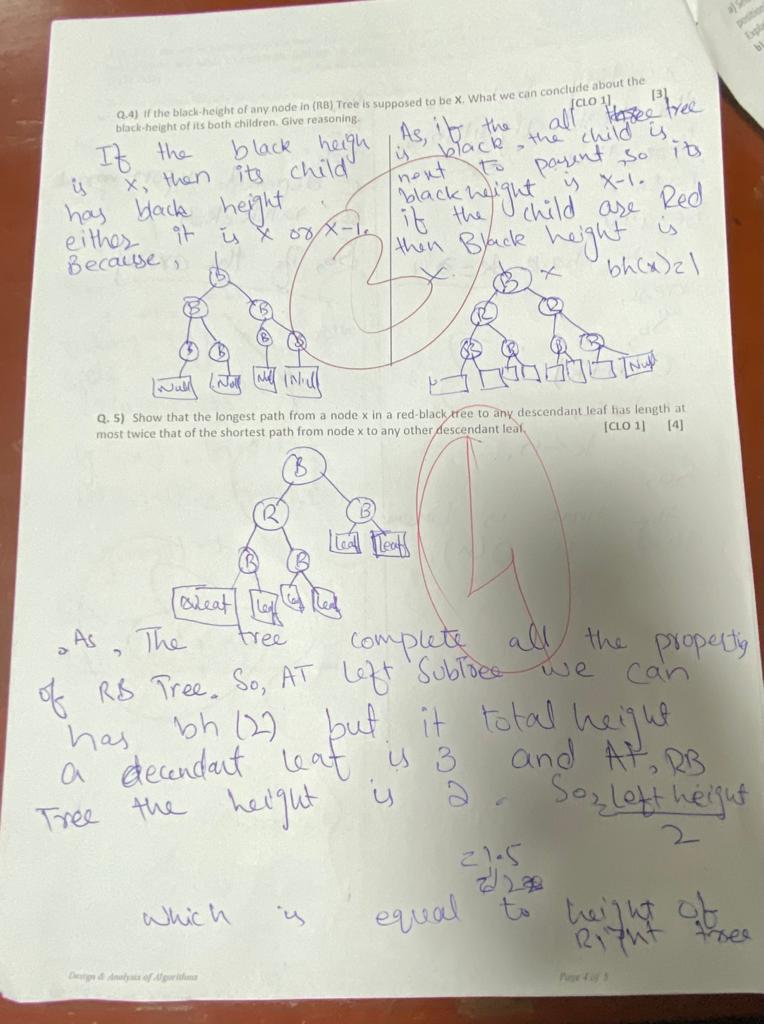 Q.4) If the black-height of any node in (RB) Tree is supposed to be X. What we can conclude about the
black-height of its both children. Give reasoning.
[CLO 1] [3]
If the black heigh
is x, then its child
has black height
either it is x or x-1.
Because,
B
B B
B B B B
Null Null Null Null
As, if the all tree
is black, the child is
next to parent, so its
black height is x-1.
if the child are Red
then Black height is
x.
B x bh(x)=1
R R
B B B B
Null
2
Q. 5) Show that the longest path from a node x in a red-black tree to any descendant leaf has length at
most twice that of the shortest path from node x to any other descendant leaf.
[CLO 1] [4]
B
R B
B B Leaf Leaf
Leaf Leaf Leaf
As, The tree complete all the property
of RB Tree. So, AT Left SubTree we can
has bh (2) but it total height
a decendant leaf is 3 and At, RB
Tree the height is 2. So, Left height
2
=1.5
which is equal to height of
Right tree
Design & Analysis of Algorithms
Page 4 of 5